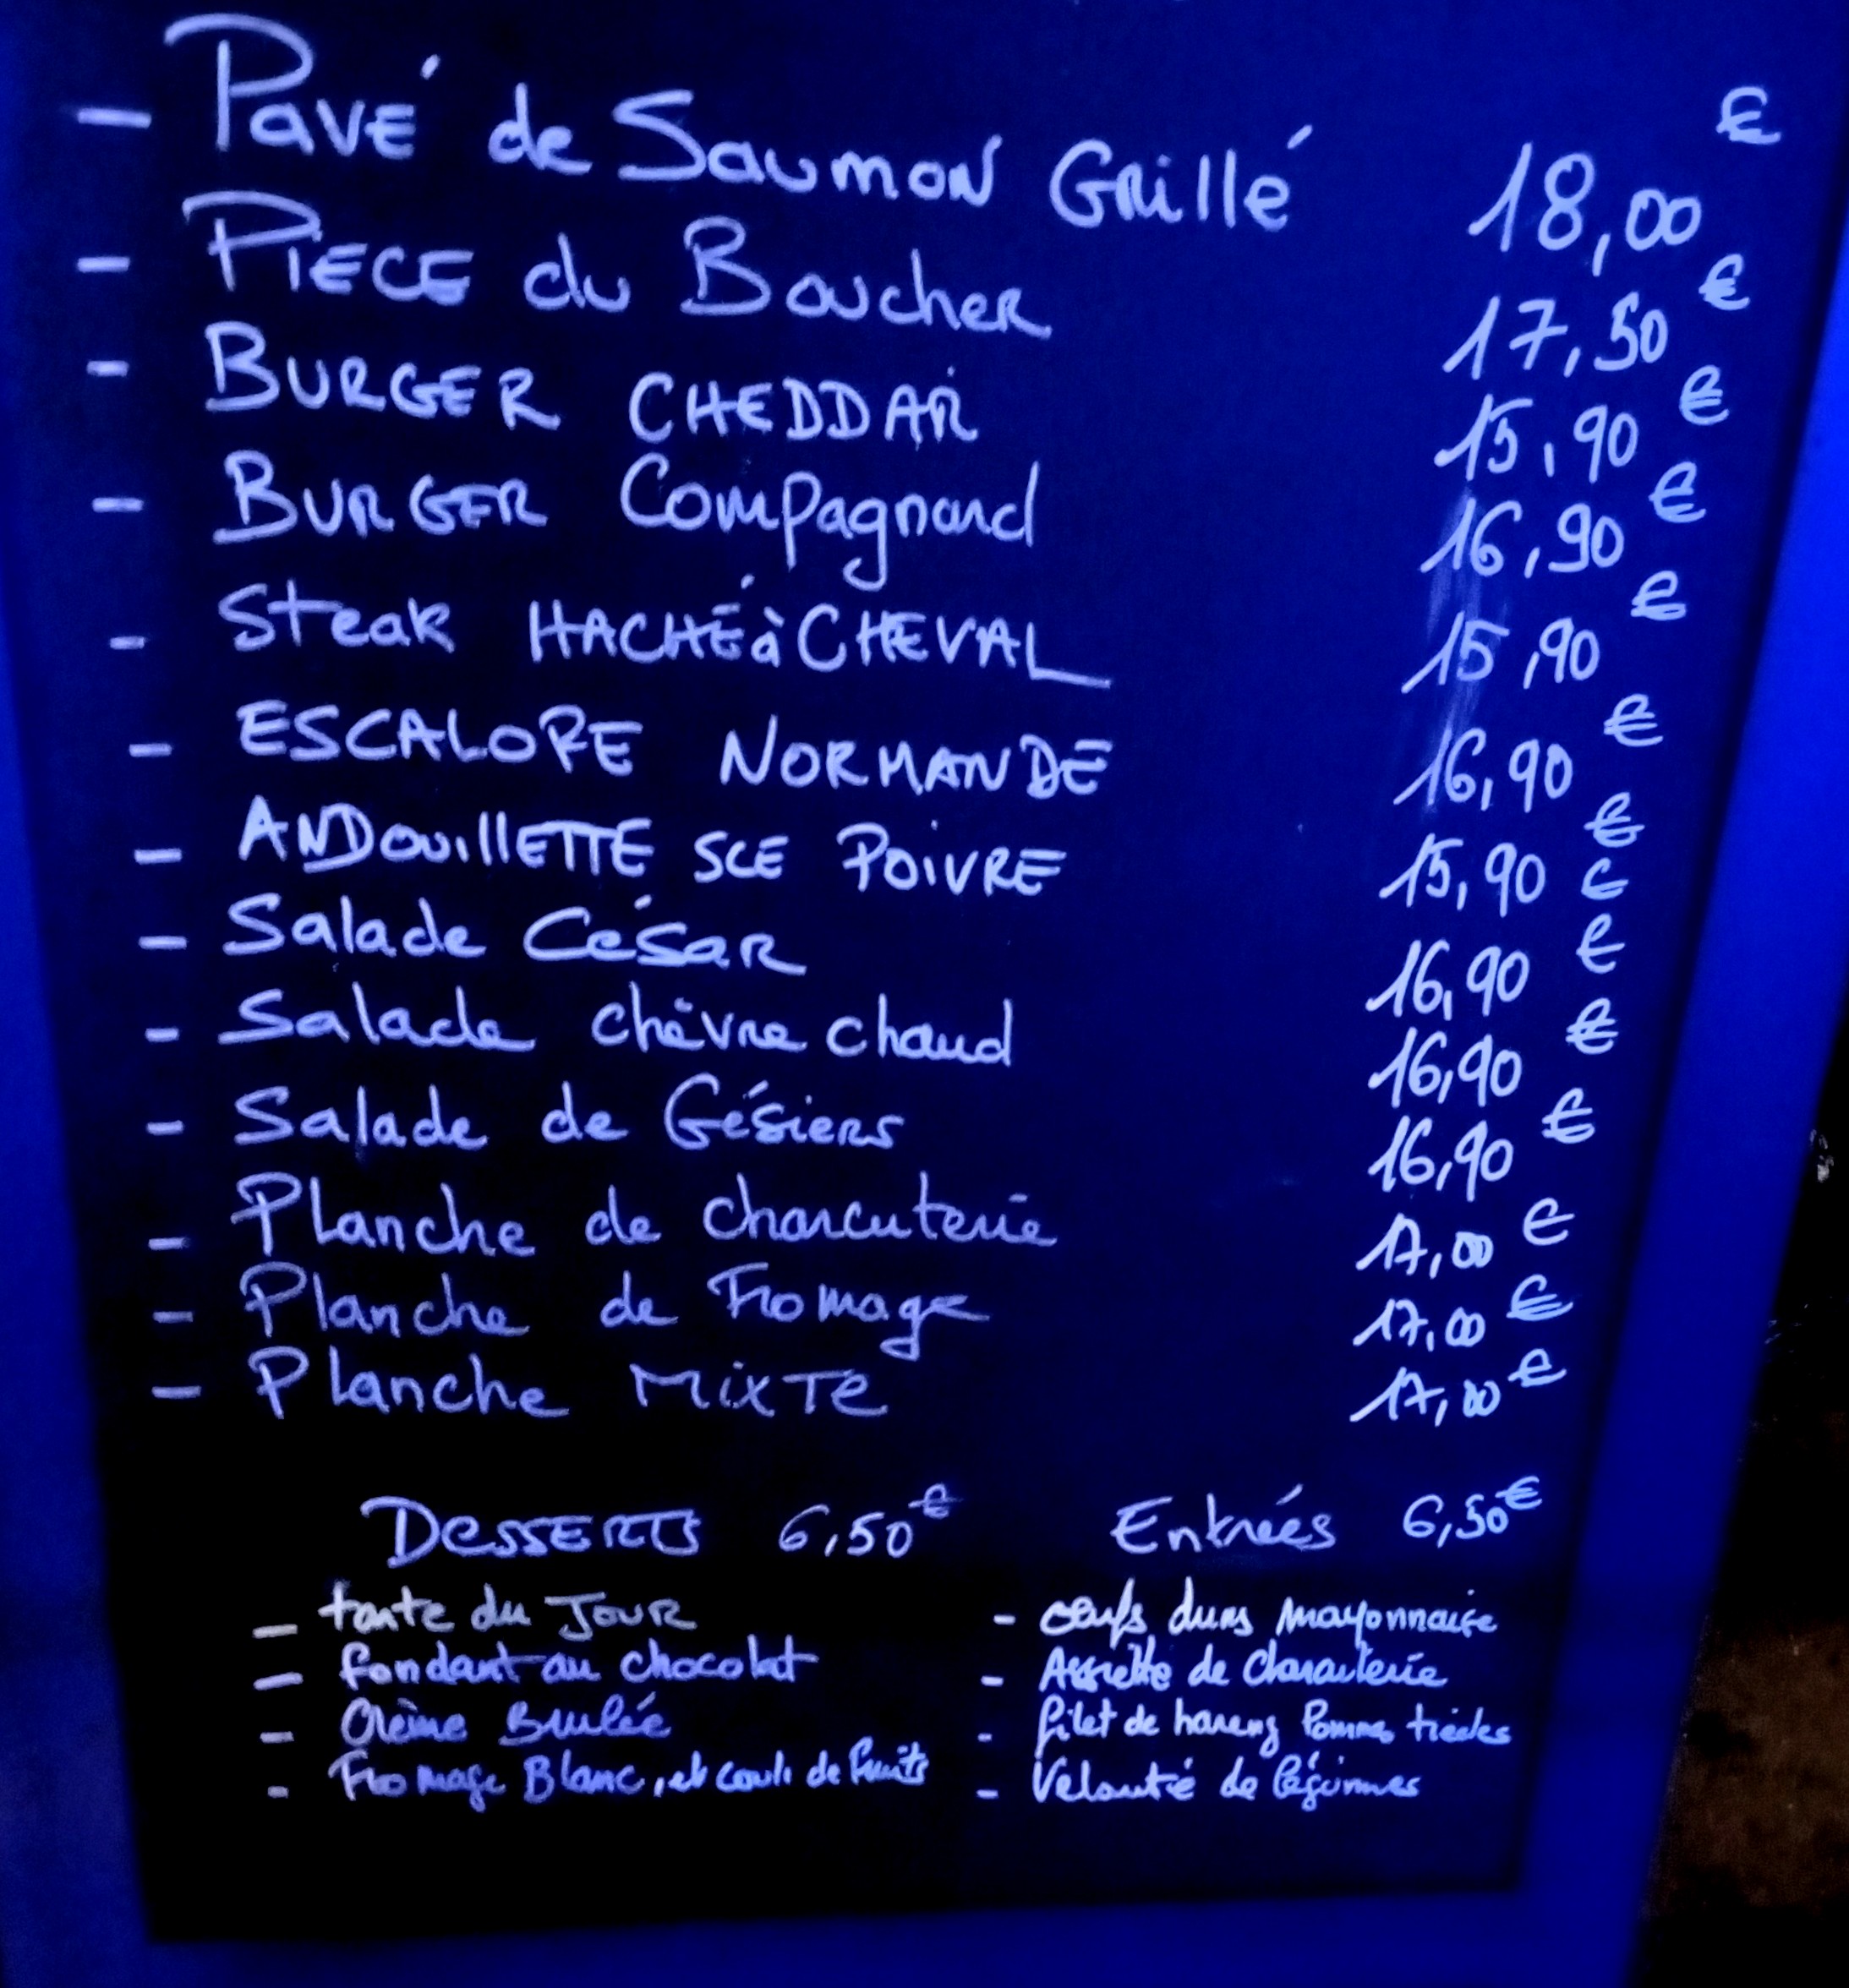 - Pavé de Saumon Grillé 18,00 €
- PIECE du Boucher 17,50 €
- BURGER CHEDDAR 15,90 €
- BURGER Compagnard 16,90 €
- Steak HACHÉ à CHEVAL 15,90 €
- ESCALOPE NORMANDE 16,90 €
- ANDOUILLETTE SCE POIVRE 15,90 €
- Salade César 16,90 €
- Salade chèvre chaud 16,90 €
- Salade de Gésiers 16,90 €
- Planche de charcuterie 17,00 €
- Planche de Fromage 17,00 €
- Planche MixTe 17,00 €
DESSERTS 6,50€
- tarte du JOUR
- fondant au chocolat
- Crème Brulée
- Fromage Blanc, et couli de fruits
Entrées 6,50€
- oeufs durs mayonnaise
- Assiette de Charcuterie
- filet de hareng Pommes tièdes
- Velouté de légumes